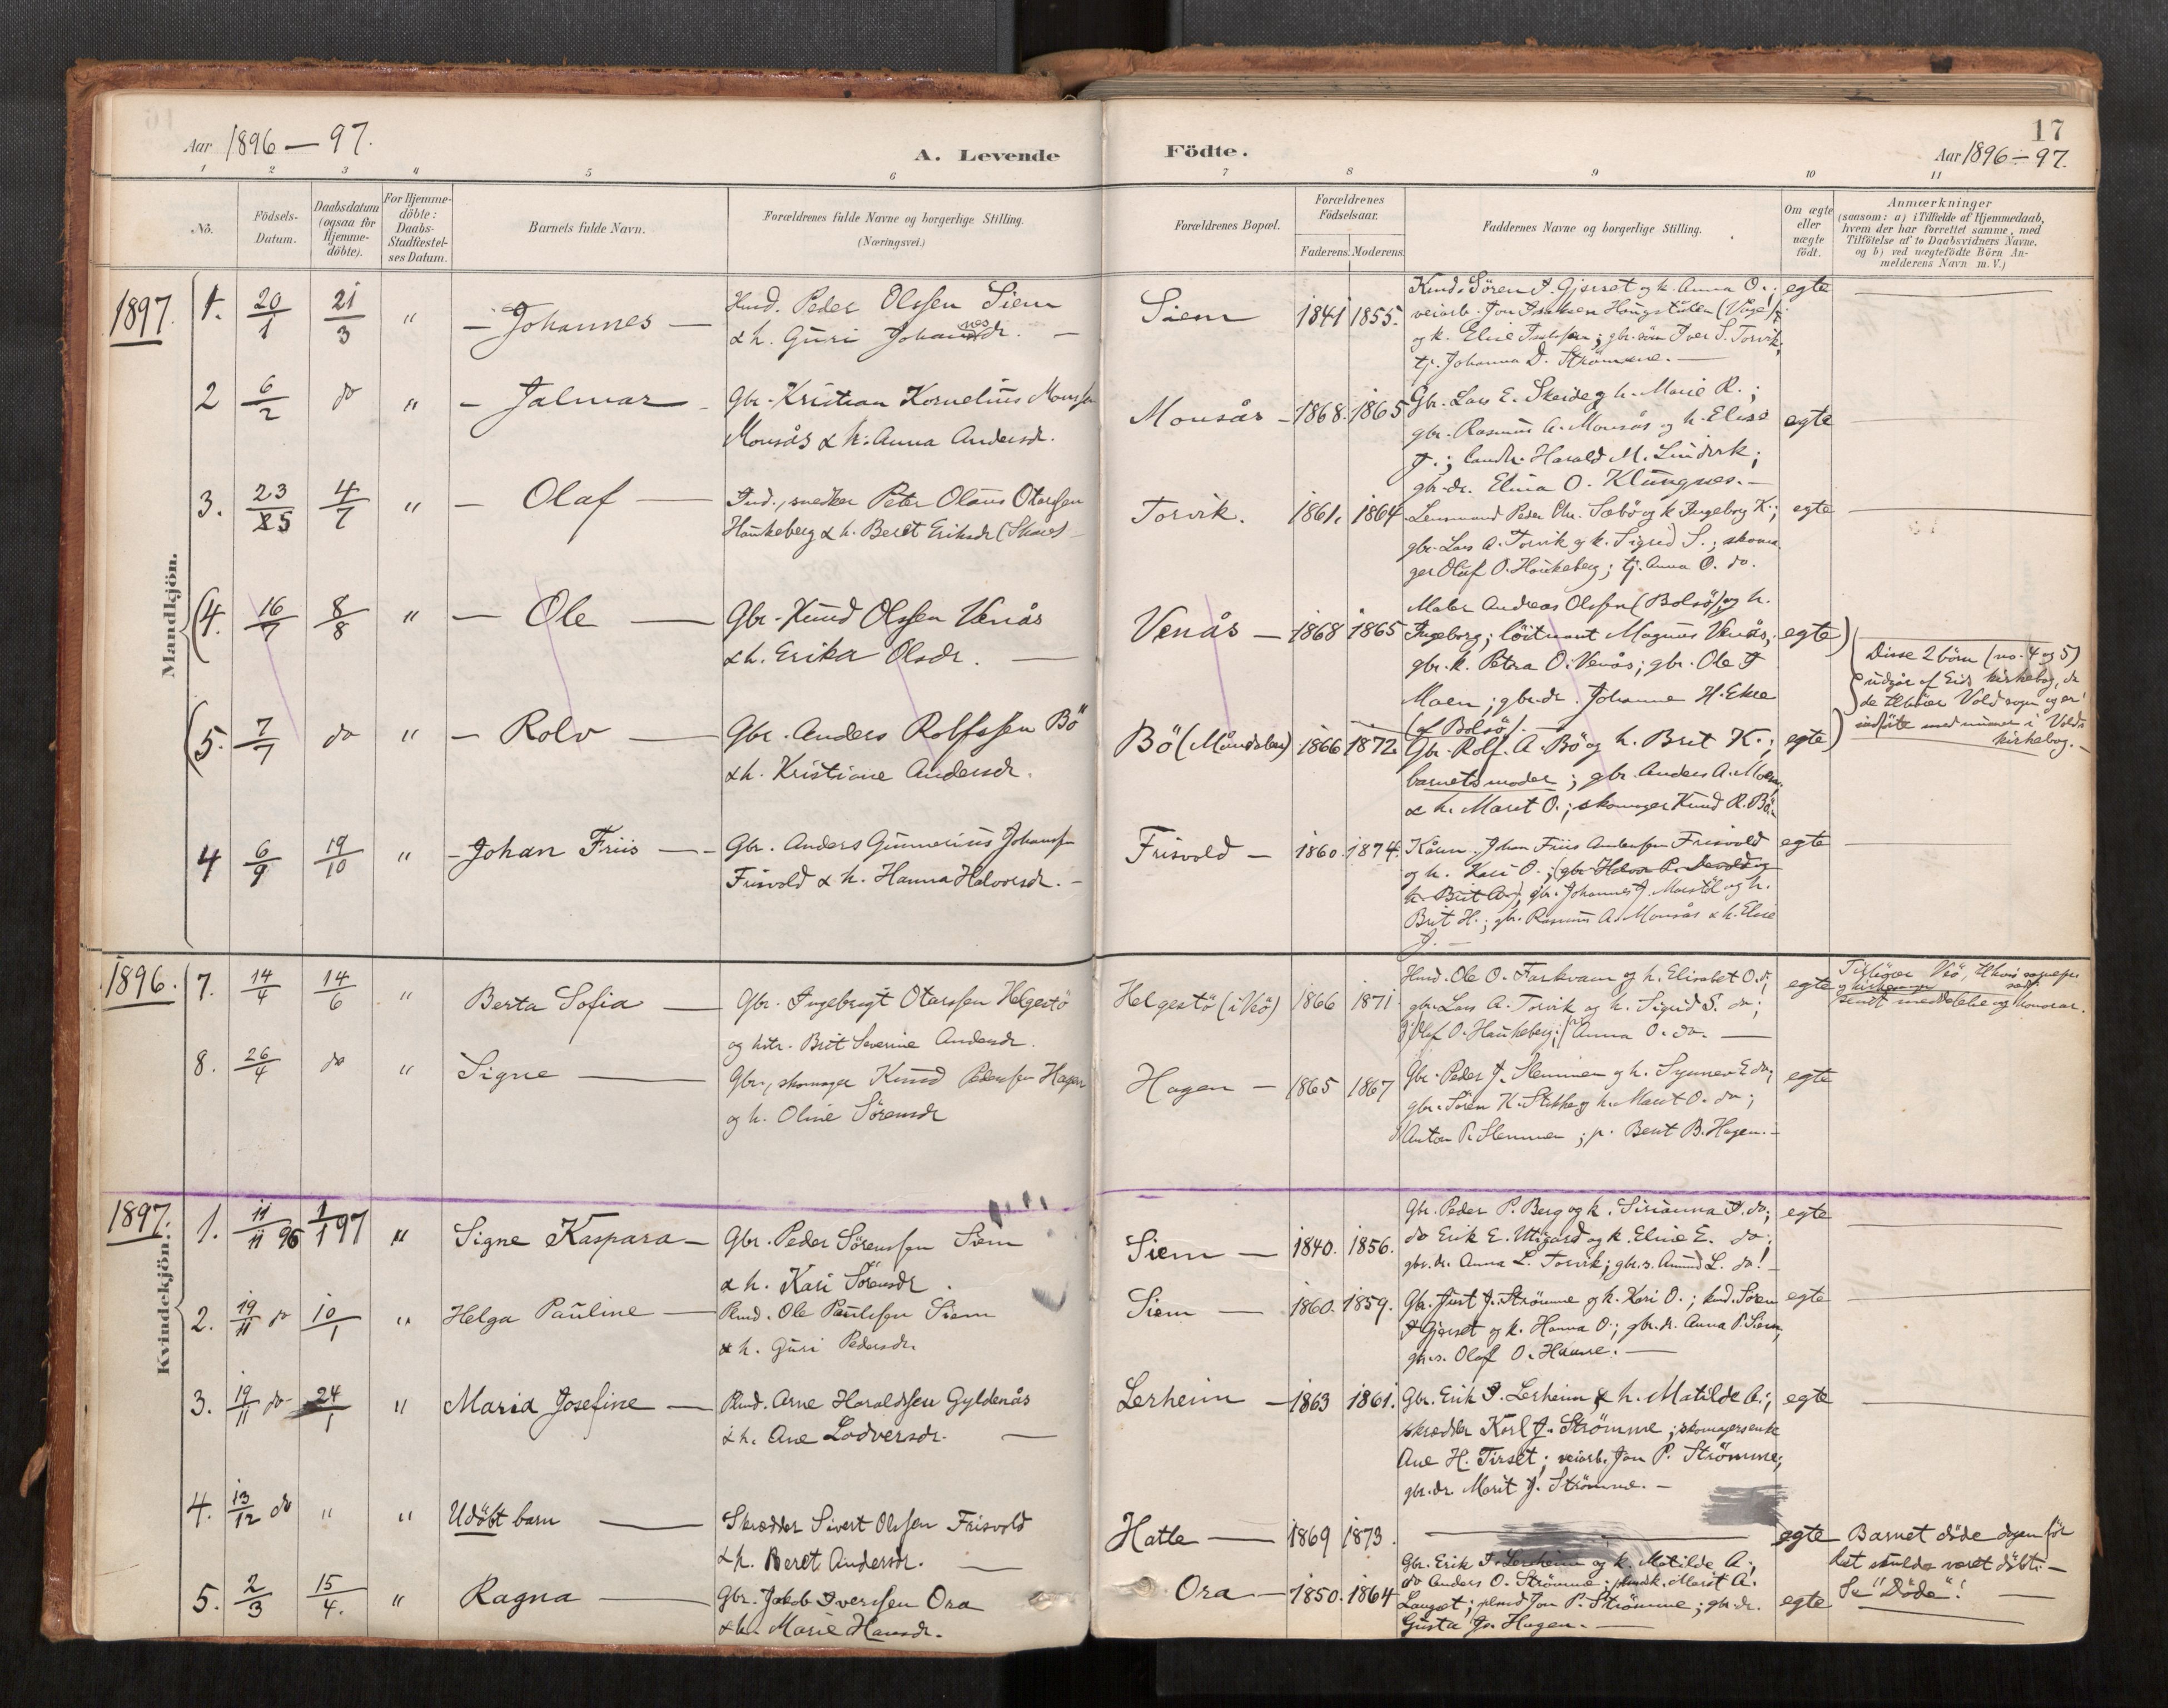 Aar 1896 — 97.
A. Levende Födte.
17
Aar 1896 — 97.
1 2 3 4 5 6 7 8 9 10 11
No.
Födsels-Datum.
Daabsdatum (ogsaa for Hjemme-döbte).
For Hjemme-döbte: Daabs-Stadfæstel-ses Datum.
Barnets fulde Navn.
Forældrenes fulde Navne og borgerlige Stilling.
(Næringsvei.)
Forældrenes Bopæl.
Forældrenes Födselsaar.
Faderens. Moderens.
Faddernes Navne og borgerlige Stilling.
Om ægte eller uægte födt.
Anmærkninger
(saasom: a) i Tilfælde af Hjemmedaab,
hvem der har forrettet samme, med
Tilföielse af to Daabsvidners Navne.
og b) ved uægtefödte Börn An-
melderens Navn m. V.)
Mandkjön.
1897. 1. 20/1 21/3 " — Johannes —
Peder Olssen Siem
& h. Guri
Siem 1841 1855.
Sören I. Gjerset og k. Anna O.;
veiarb. Jon
og k. Eline
tj. Johanna D. Strömme. —
egte
2 6/2 do " — Jalmar —
Gbr. Kristian Kornelius
Monsås & h. Anna Andersdr.
Monsås — 1868. 1865
Gbr. Lars E. Skeide og h. Marie R.;
gbr. Rasmus A. Monsås og h. Elise
J.; Harald M.
gbr. dr. Elina O. Klungnes. —
egte
3. 23/5 4/7 " — Olaf —
snedker Peter Olaus Otarssen
Haukeberg & h. Beret Eriksdr
Torvik. 1861. 1864
Lensmand Peder Chr. Sæbö og k Ingeborg K.;
gbr. Lars A. Torvik og k. Sigrid S.; skoma
ger Oluf O. Haukeberg; tj. Anna O. do.
egte
(4. 16/7 8/8 " — Ole —
Gbr. Knud Olssen Venås
& h. Erika Olsdr. —
Venås — 1868 1865
Maler Andreas Olssen (Bolsö) og h.
Ingeborg; löitnant Magnus Venås,
gbr. k. Petra O. Venås; gbr. Ole I
Moen; gbr. dr. Johanne H. Ekre
(af Bolsö). —
egte)
Disse 2 börn (no. 4 og 5)
udgår af Eids kirkebog, da
de tilhörer Vold sogn og er
indförte med numer i Volds
kirkebog. —
(5. 7/7 do " — Rolv —
Gbr. Anders Rolfssen Bö
& h. Kristiane Andersdr.
Bö 1866 1872.
Gbr. Rolf A. Bö og h. Brit K.;
barnets moder; gbr. Anders A. Moen
& h. Marit O.; skomager Knud R. Bö.
egte)
4 6/9 19/10 " — Johan Friis —
Gbr. Anders Gunnerius
Frisvold & h. Hanna Halvorsdr. —
Frisvold — 1860. 1874.
Johan Friis Anderssen Frisvold
og h. Kari O.;
h. Brit A.); gbr. Johannes J. og h.
Brit H.; gbr. Rasmus A. Monsås & h. Elise
J. —
egte
1896. 7. 14/4 14/6 " Berta Sofia —
Gbr. Ingebrigt Otarssen Helgestö
og hstr. Brit Severine Andersdr.
Helgestö (i Veö) 1866 1871
Ole O. Farkvam og h. Elisabet O. d.;
gbr. Lars A. Torvik og h. Sigrid S. do;
Olof O. Haukeberg; Anna O. do. —
egte
Tilhörer Veö,
sendt meddelelse og honorar.
8. 26/4 do " Signe —
Gbr., skomager Knud Pederssen Hagen
og h. Oline Sörensdr
Hagen — 1865 1867
Gbr. Peder J. Slemmen og h. Synnev E. do;
gbr. Sören K. Stokke og h. Marit O. do;
Anton P. Slemmen; p. Berit B. Hagen. —
egte
Kvindekjön.
1897. 1. 11/11 96 1/1 97 " Signe Kaspara —
Gbr. Peder Sörenssen Siem
& h. Kari Sörensdr.
Siem — 1840. 1856.
Gbr. Peder P. Berg og k. Sirianna I. do;
do Erik E. Utigard og k. Eline E. do;
gbr. dr. Anna L. Torvik; gbr. s. Amund L. do! —
egte
2. 19/11 do 10/1 " Helga Pauline —
Ole Paulssen Siem
& h. Guri Pedersdr.
Siem — 1860. 1859.
Gbr. Just J. Strömme og k. Kari O.; Sören
I Gjerset og k. Hanna O.; gbr. dr. Anna P. Siem,
gbr. s. Olof O. —
egte
3. 19/11 do 24/1 " Maria Josefine —
Arne Haraldssen Gyldenås
& h. Ane Lodversdr. —
Lerheim — 1863 1861.
Gbr. Erik I. Lerheim & h. Matilde A.;
skrædder Karl J. Strömme; skomagerenke
Ane H. Tirset; veiarb. Jon P. Strömme;
gbr. dr. Marit J. Strömme. —
egte
4. 13/12 do " " Udöbt barn —
Skrædder Sivert Olssen Frisvold
& h. Beret Andersdr. —
Hatle — 1869 1873. —
egte
Barnet döde dagen för
det skulde været döbt. —
Se "Döde"! —
5. 2/3 15/4. " Ragna —
Gbr. Jakob Iverssen Ora
& h. Marie Hansdr.
Ora — 1850. 1864
Gbr. Erik I. Lerheim og k. Matilde A.;
do Anders O. Strömme; Marit A.
Langset; Jon P. Strömme; gbr. dr.
Gusta Jo. Hagen. —
egte